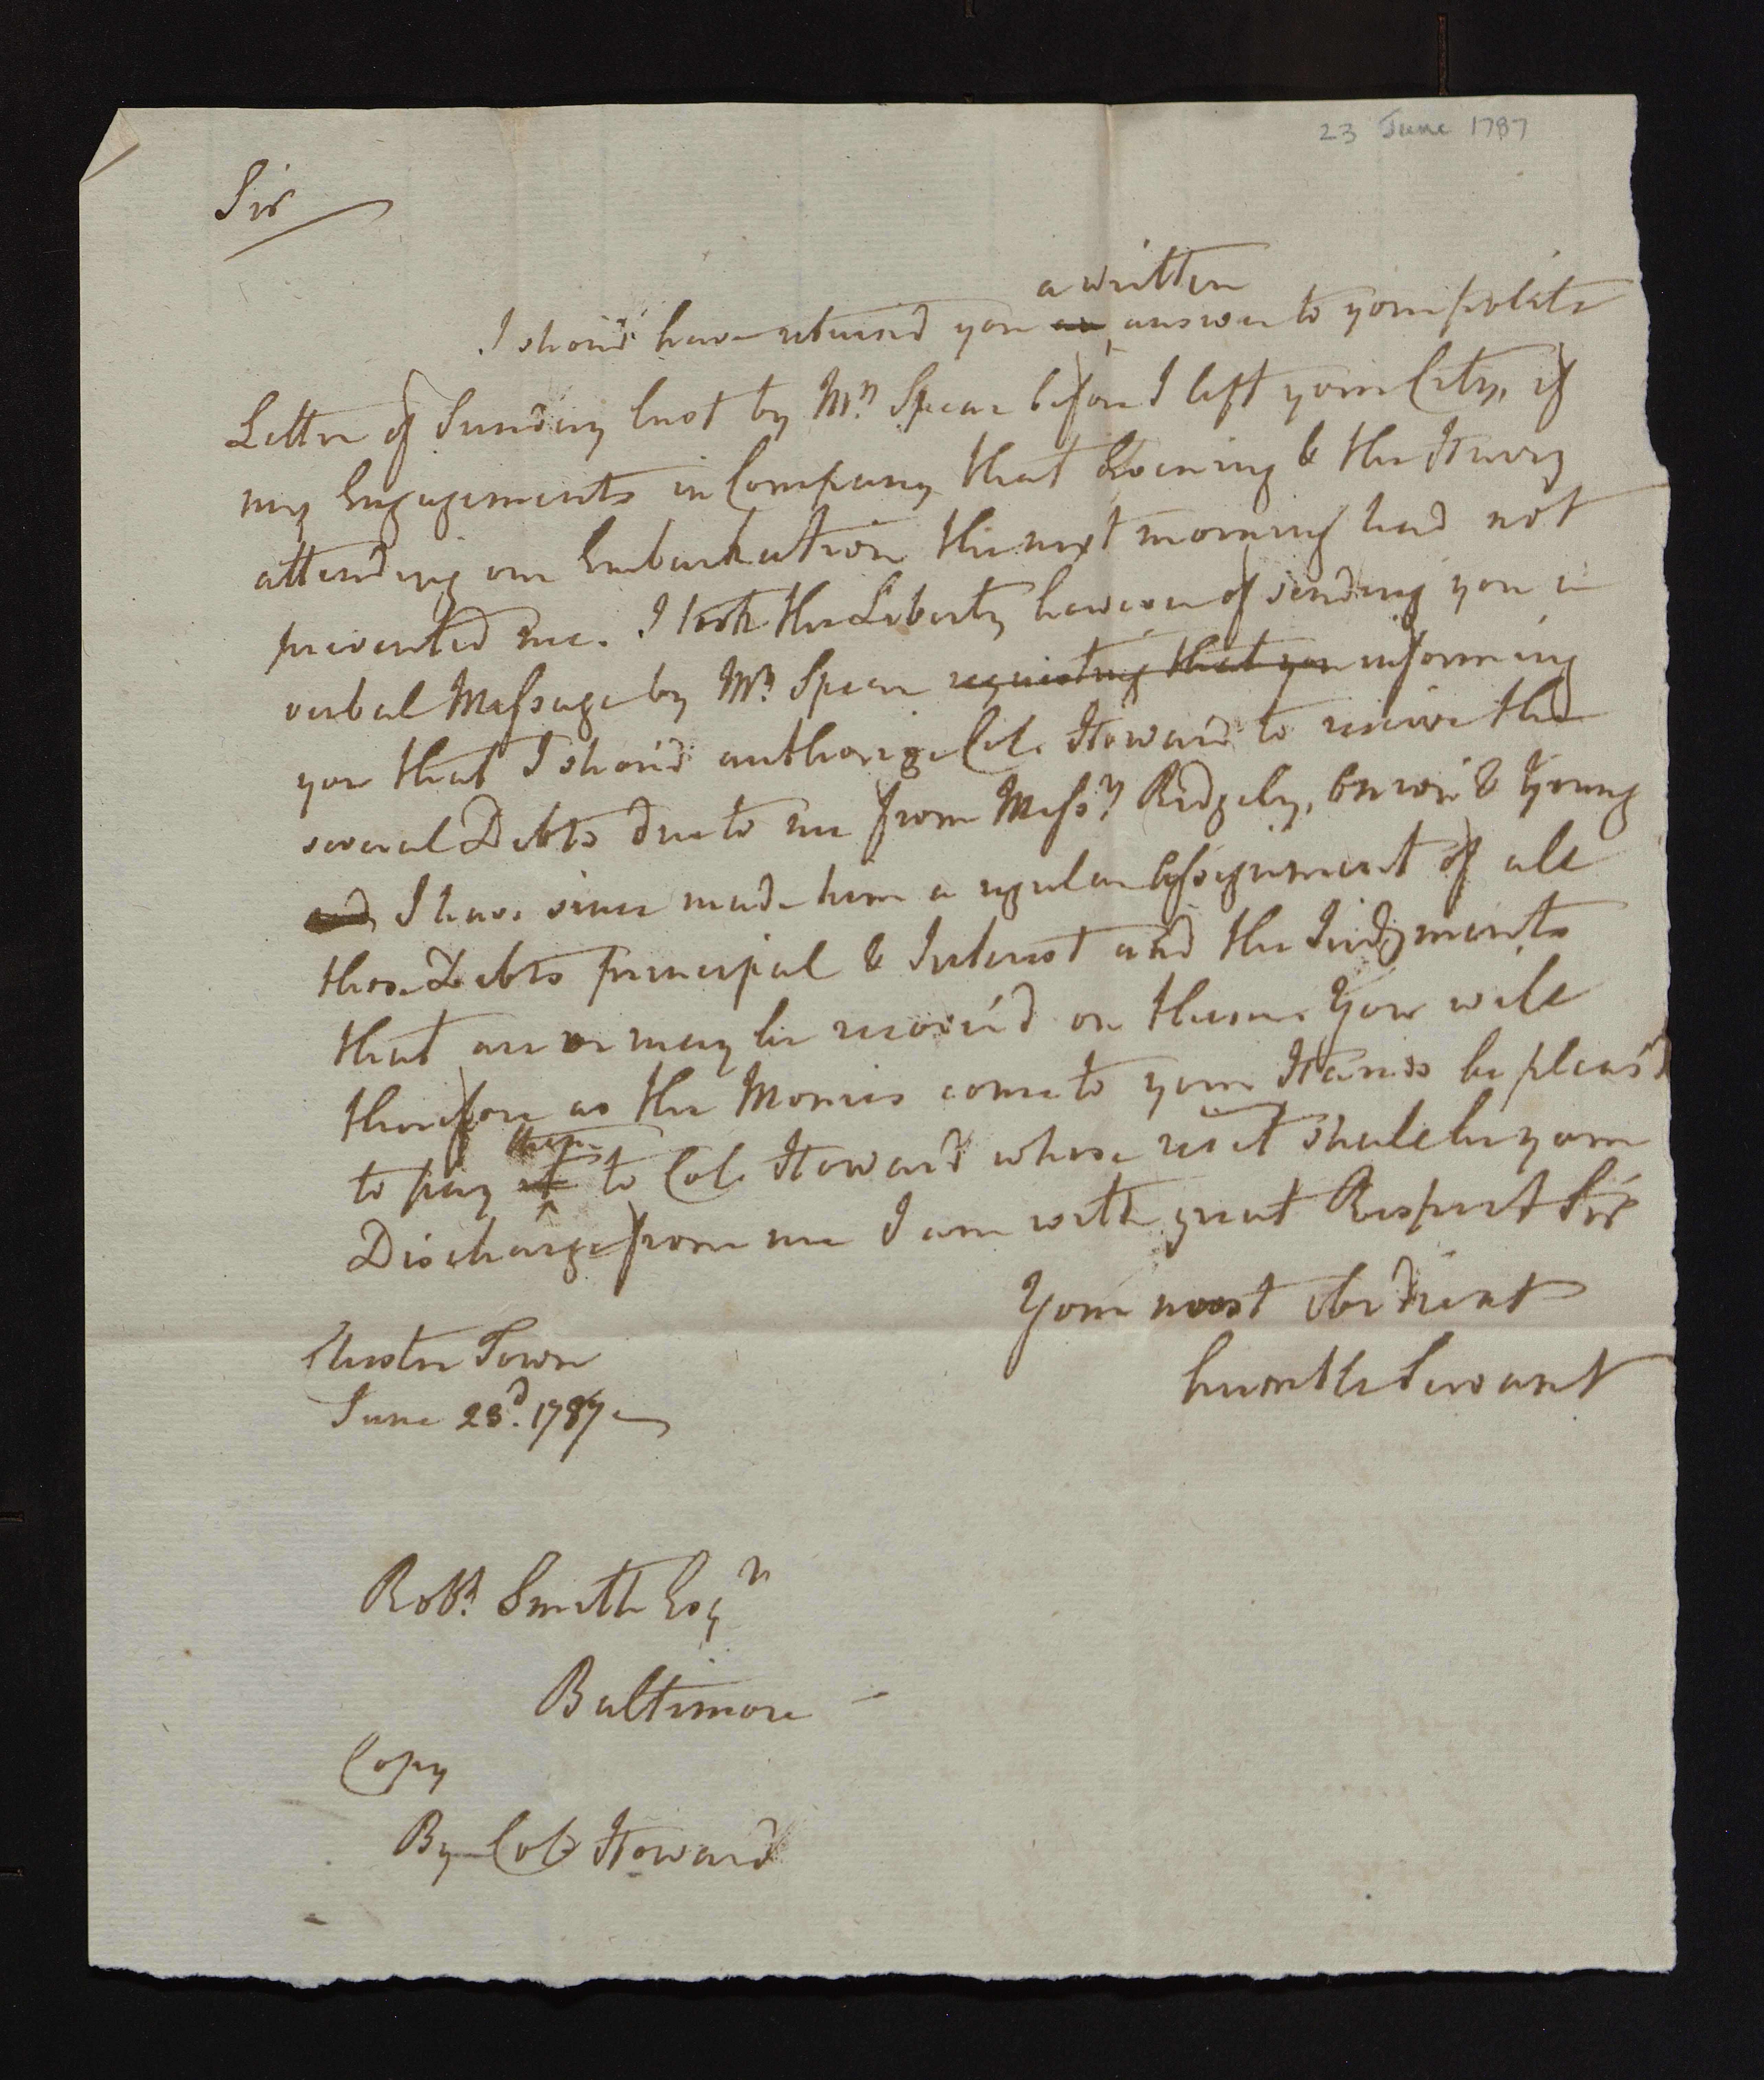 23 June 1787
Sir
a written
I shou'd have return'd you an answer to your polite
Letter of Sunday last by Mr. Spear before I left your City, if
my Engagements in Company that Evening & the Hurry
attending our Embarkation the next morning had not
prevented me. I took the Liberty however of sending you a
verbal Message by Mr. Spear requesting that you informing
you that I shou'd authorize Col. Howard to receive the
several Debts due to me from Messrs. Ridgely, &
Young
and I have since made him a regular Assignment of all
these Debts principal & Interest and the Judgments
that are or may be recover'd on them. You will
therefore as the Monies come to your Hands be pleas'd
them
to pay it to Col. Howard whose receipt shall be your
Discharge from me I am with great Respect Sir
Your most obedient
humble Servant
Chester Town
June 23d. 1787
Robt. Smith Esqr
Baltimore
Copy
By Col. Howard